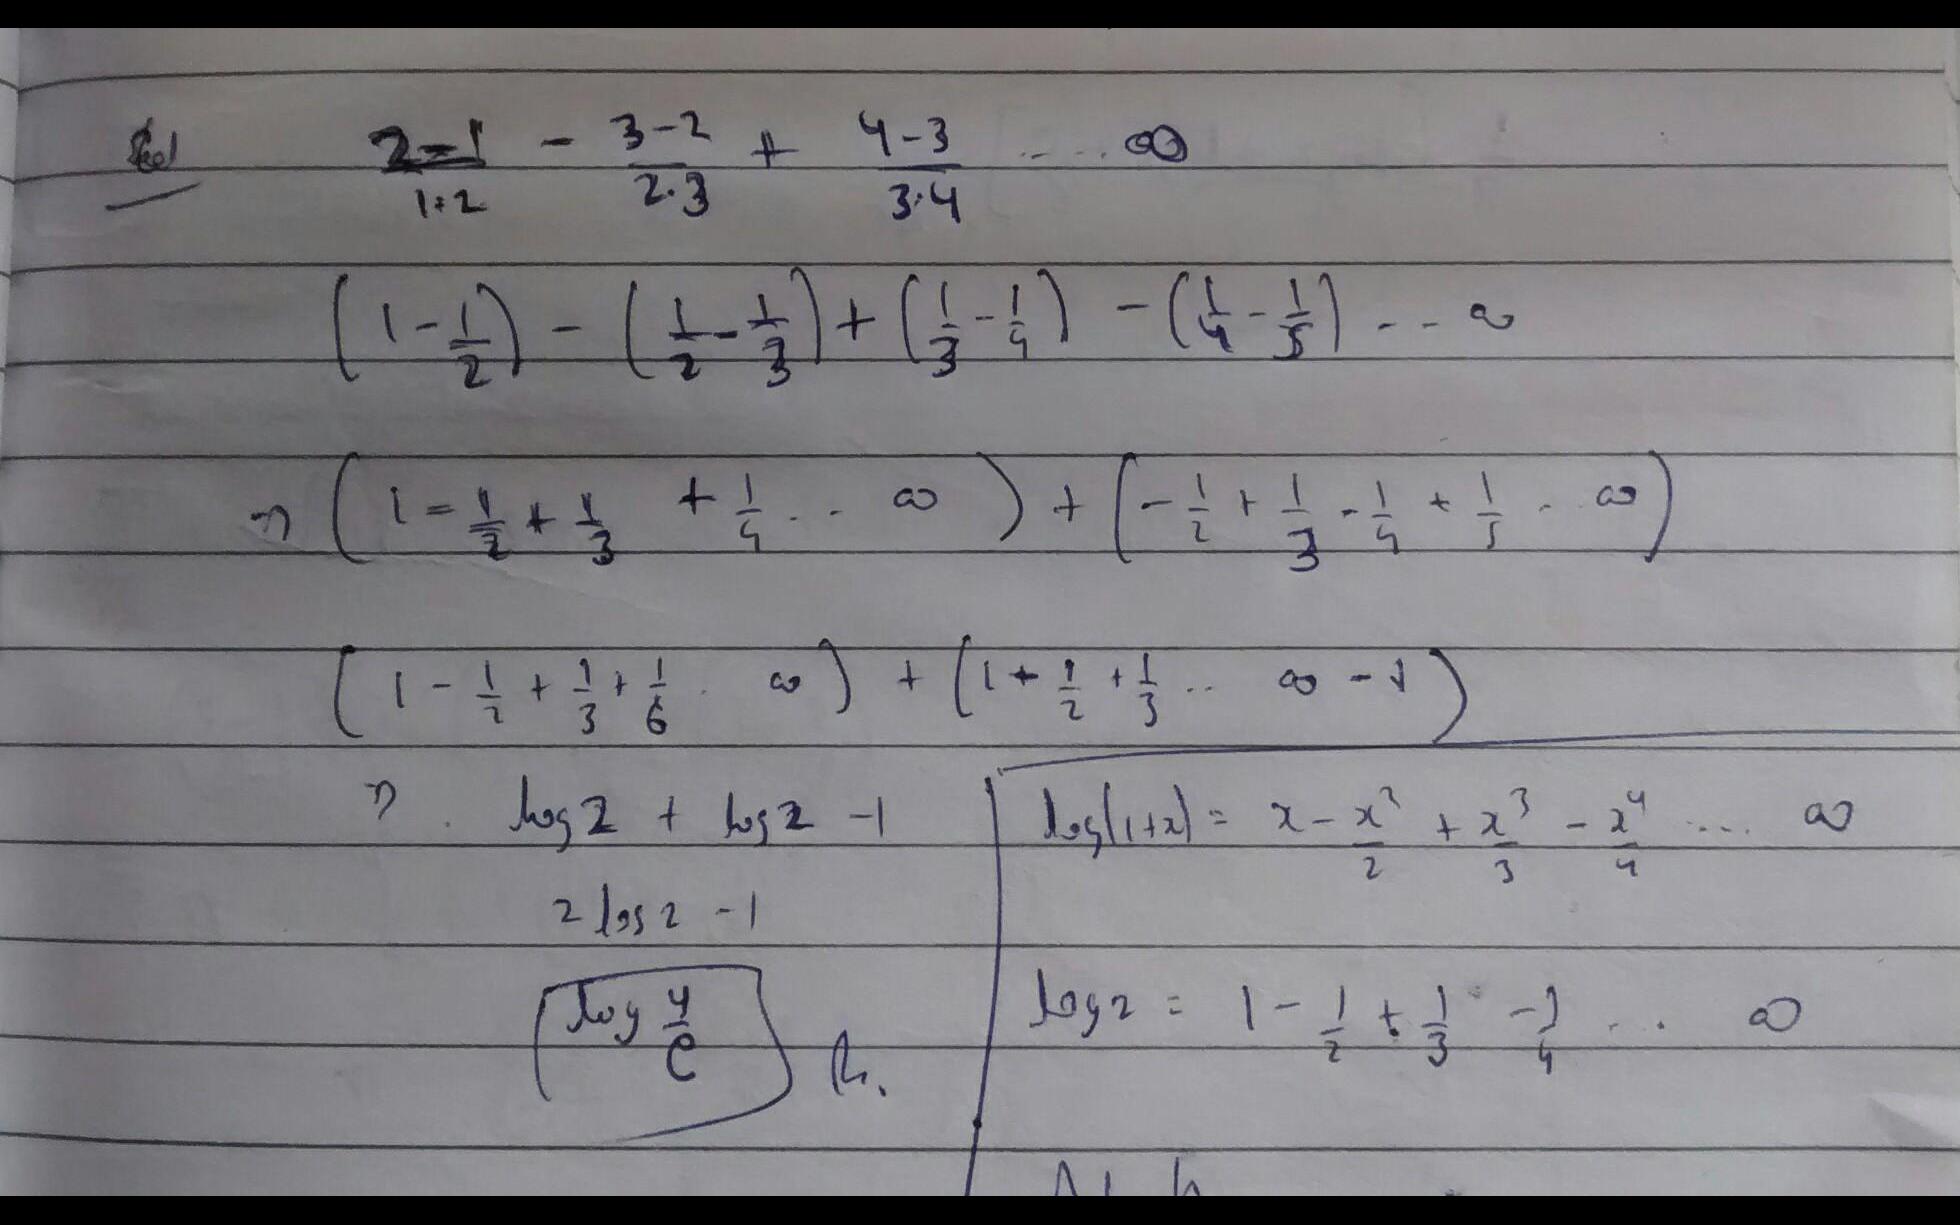 Sol 2-1/1·2 - 3-2/2·3 + 4-3/3·4 ..... ∞
(1-1/2) - (1/2-1/3) + (1/3-1/4) - (1/4-1/5) ... ∞
⇒ (1-1/2+1/3 +1/4 ... ∞) + (-1/2+1/3-1/4+1/5 .. ∞)
(1-1/2+1/3+1/6 . ∞) + (1+1/2+1/3 .. ∞ -1)
⇒ log2 + log2 -1
2log2 -1
log 4/e
log(1+x) = x - x²/2 + x³/3 - x⁴/4 .... ∞
log2 = 1 - 1/2 + 1/3 - 1/4 ... ∞